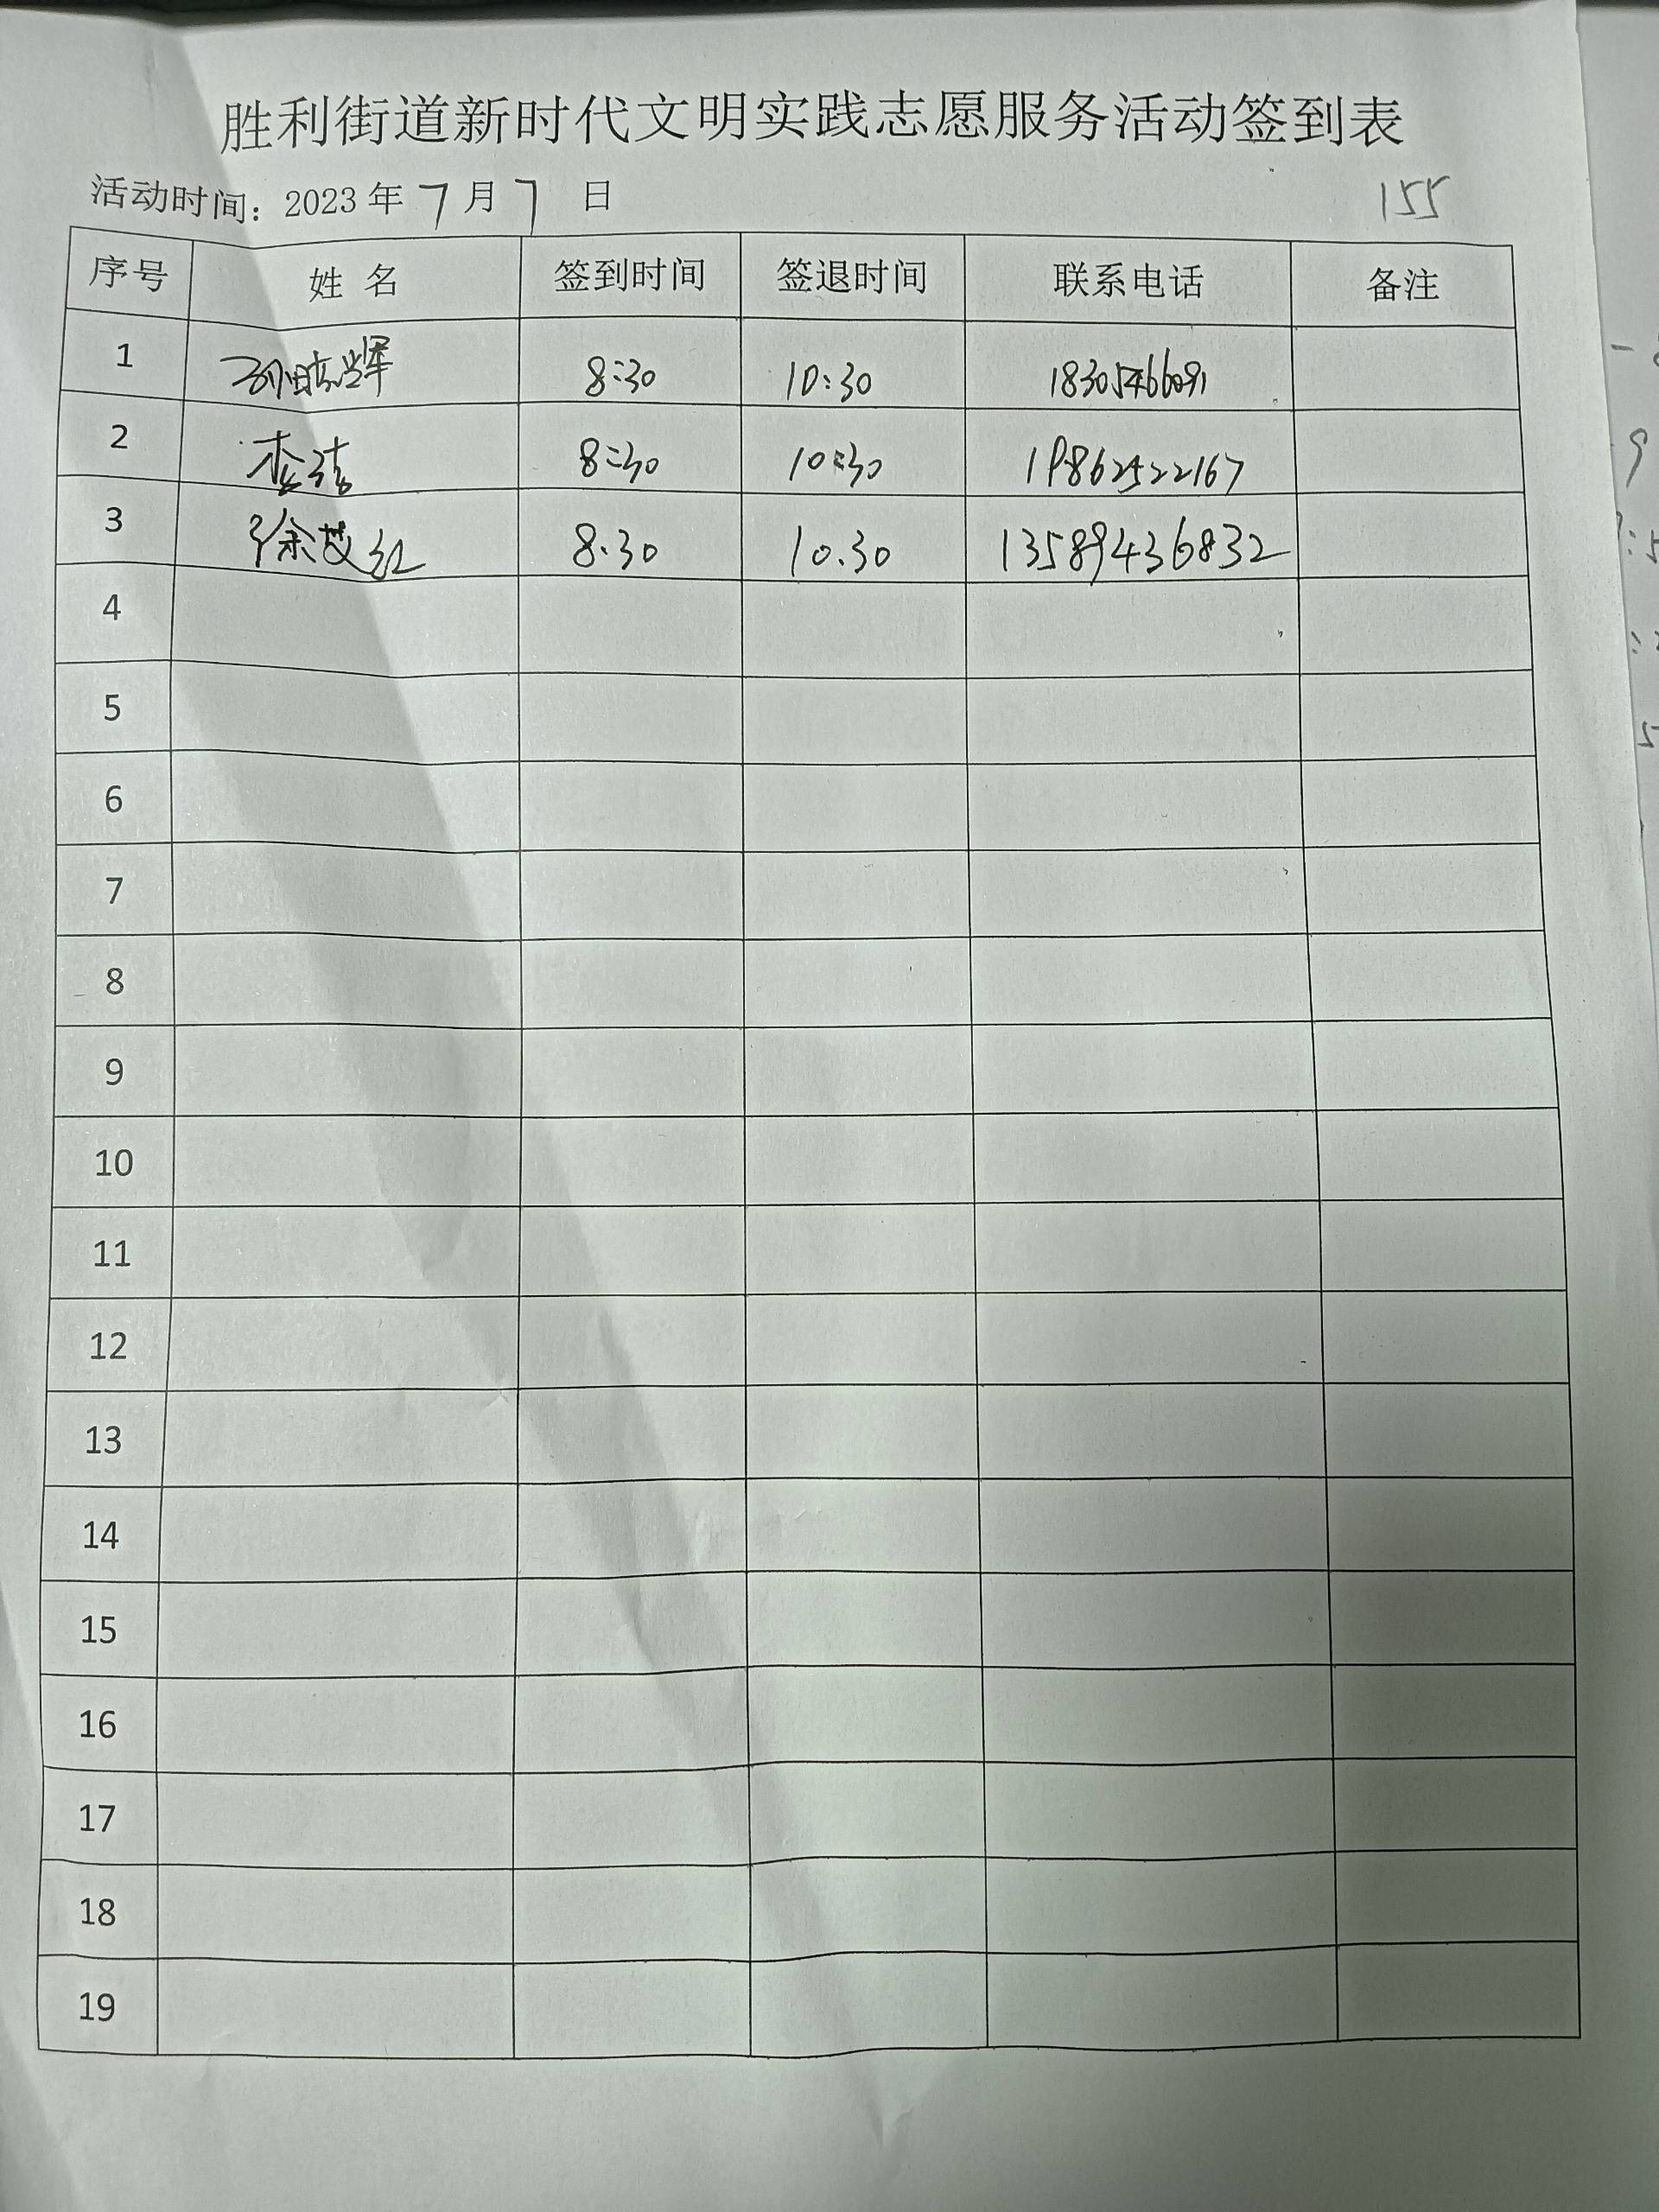 胜利街道新时代文明实践志愿服务活动签到表
活动时间：2023年 7 月 7 日 155
序号 姓 名 签到时间 签退时间 联系电话 备注
1 8:30 10:30
2 李洁 8:30 10:30 19862522167
3 徐艾红 8.30 10.30 13589436832
4
5
6
7
8
9
10
11
12
13
14
15
16
17
18
19